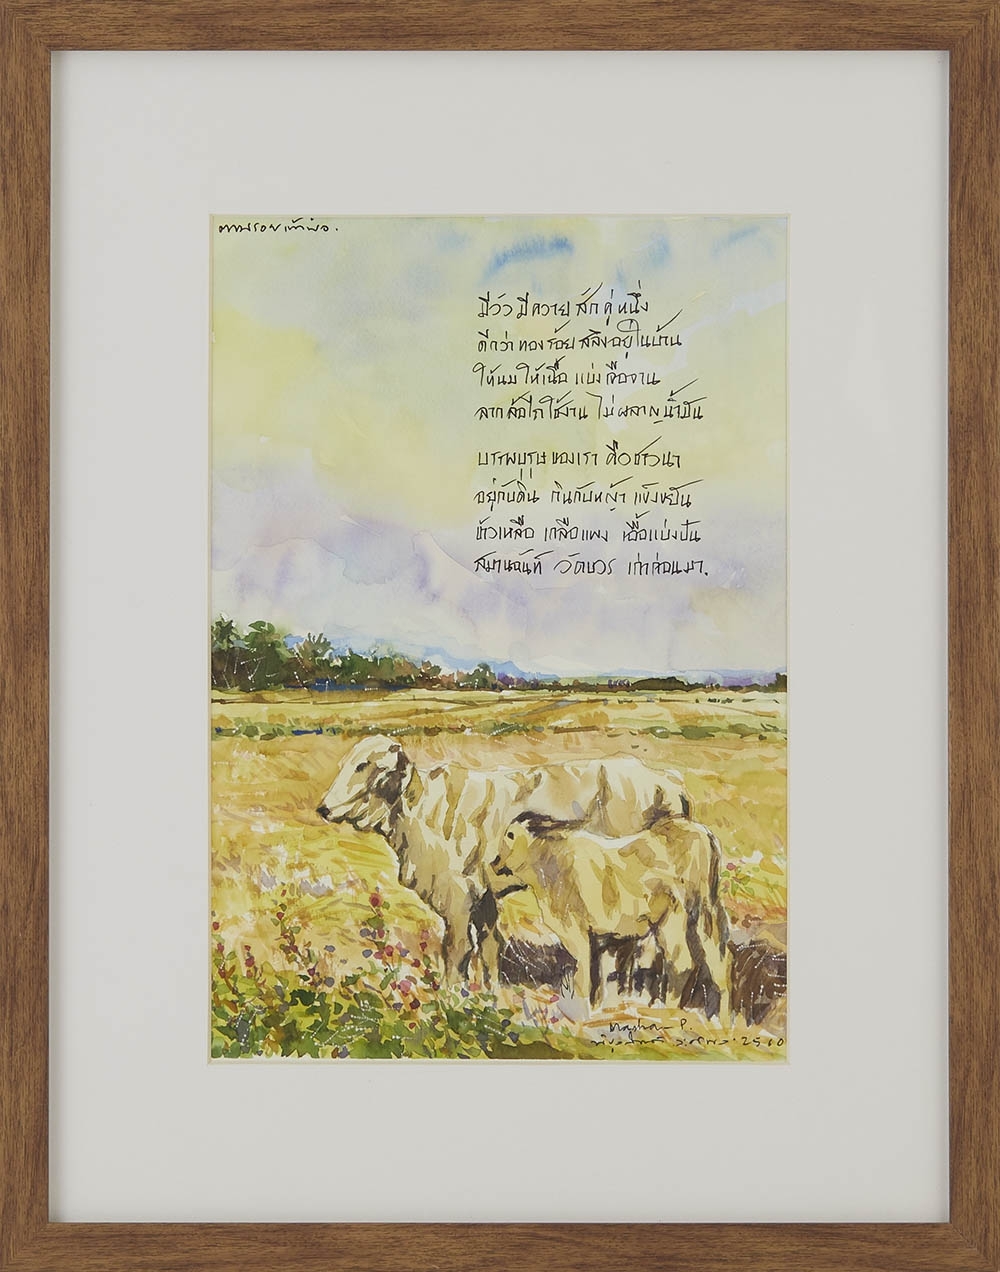 ตามรอยเท้าพ่อ.
มีวัว มีควาย สัก คู่ หนึ่ง
ดีกว่า ทอง ร้อย สลึง อยู่ ใน บ้าน
ให้นม ให้เนื้อ แบ่ง เจือจาน
ลาก ล้อ ไถ ใช้งาน ไม่ ผลาญ น้ำมัน
บรรพบุรุษ ของเรา คือ ชาวนา
อยู่กับดิน กินกับหญ้า แข็งขยัน
ข้าวเหลือ เกลือแพง เอื้อ แบ่งปัน
สมานฉันท์ วัด บวร เก่าก่อน มา.
P.
2510